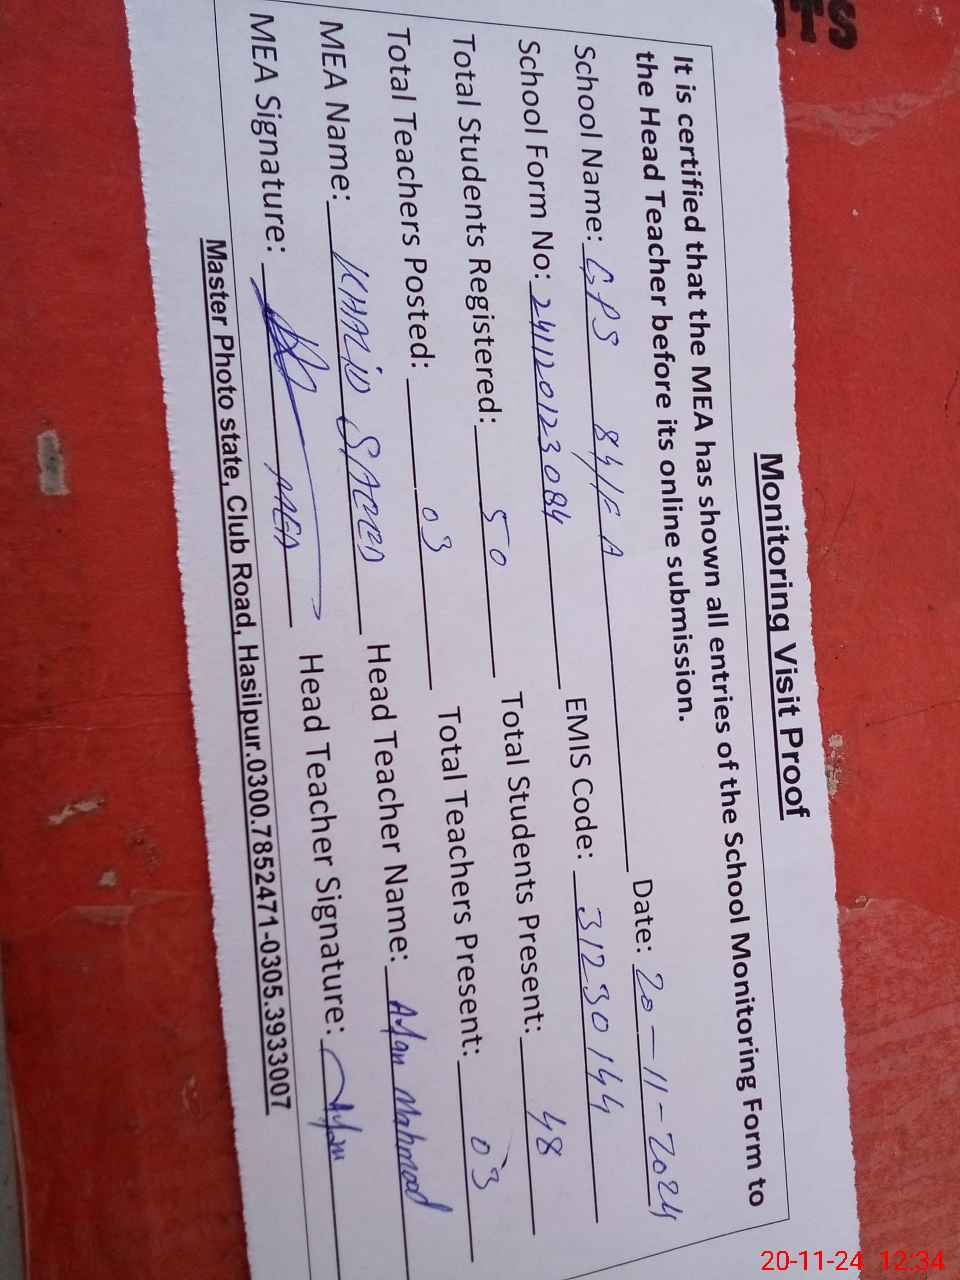 Monitoring Visit Proof
It is certified that the MEA has shown all entries of the School Monitoring Form to
the Head Teacher before its online submission.
School Name: GPS 84/F A Date: 20-11-2024
School Form No: 241120123084 EMIS Code: 31230144
Total Students Registered: 50 Total Students Present: 48
Total Teachers Posted: 03 Total Teachers Present: 03
MEA Name: KHALID SAEED Head Teacher Name: Mahmood
MEA Signature: MEA Head Teacher Signature:
Master Photo state, Club Road, Hasilpur.0300.7852471-0305.3933007
20-11-24 12:34